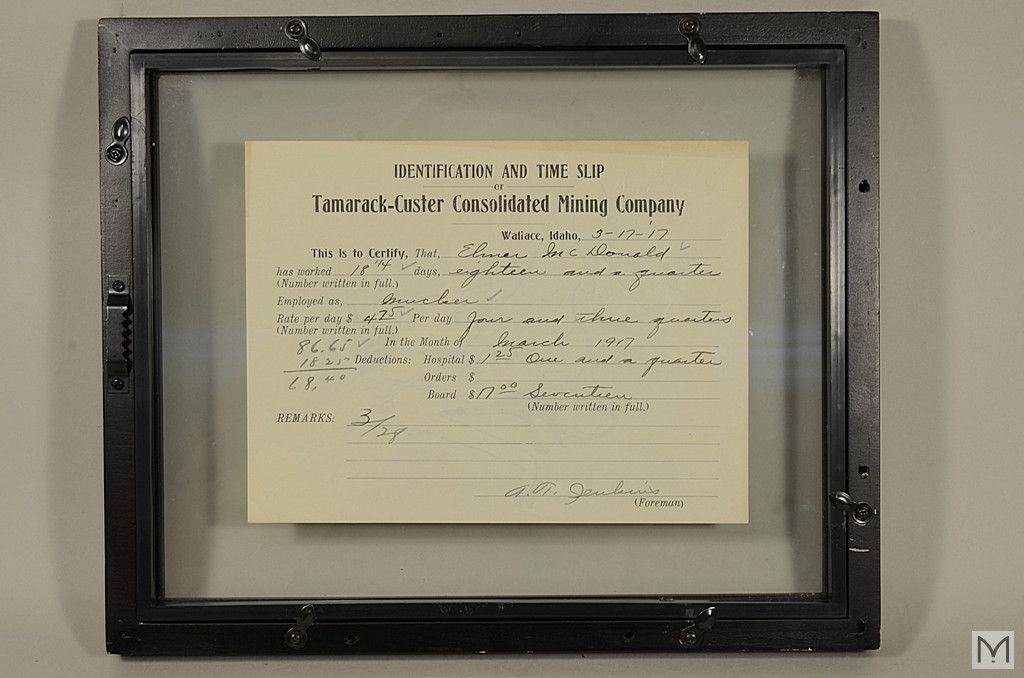 IDENTIFICATION AND TIME SLIP
OF
Tamarack-Custer Consolidated Mining Company
Wallace, Idaho, 3-17-'17
This Is to Certify, That, Elmer McDonald
has worked 18 1/4 days, eighteen and a quarter
(Number written in full.)
Employed as, mucker
Rate per day $ 4.75 Per day four and three quarters
(Number written in full.)
In the Month of March 1917
86.65
18 25 Deductions: Hospital $ 1 25 One and a quarter
68,40
Orders $
Board $ 17 00 Seventeen
(Number written in full.)
REMARKS: 3/28
A. T. Jenkins
(Foreman)
M